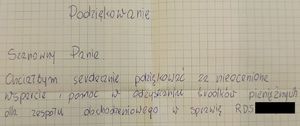 Podziękowanie
Szanowny Panie.
Chciałbym serdecznie podziękować za nieocenione
wsparcie i pomoc w odzyskaniu środków pieniężnych
dla zespołu dochodzeniowego w sprawie RDS